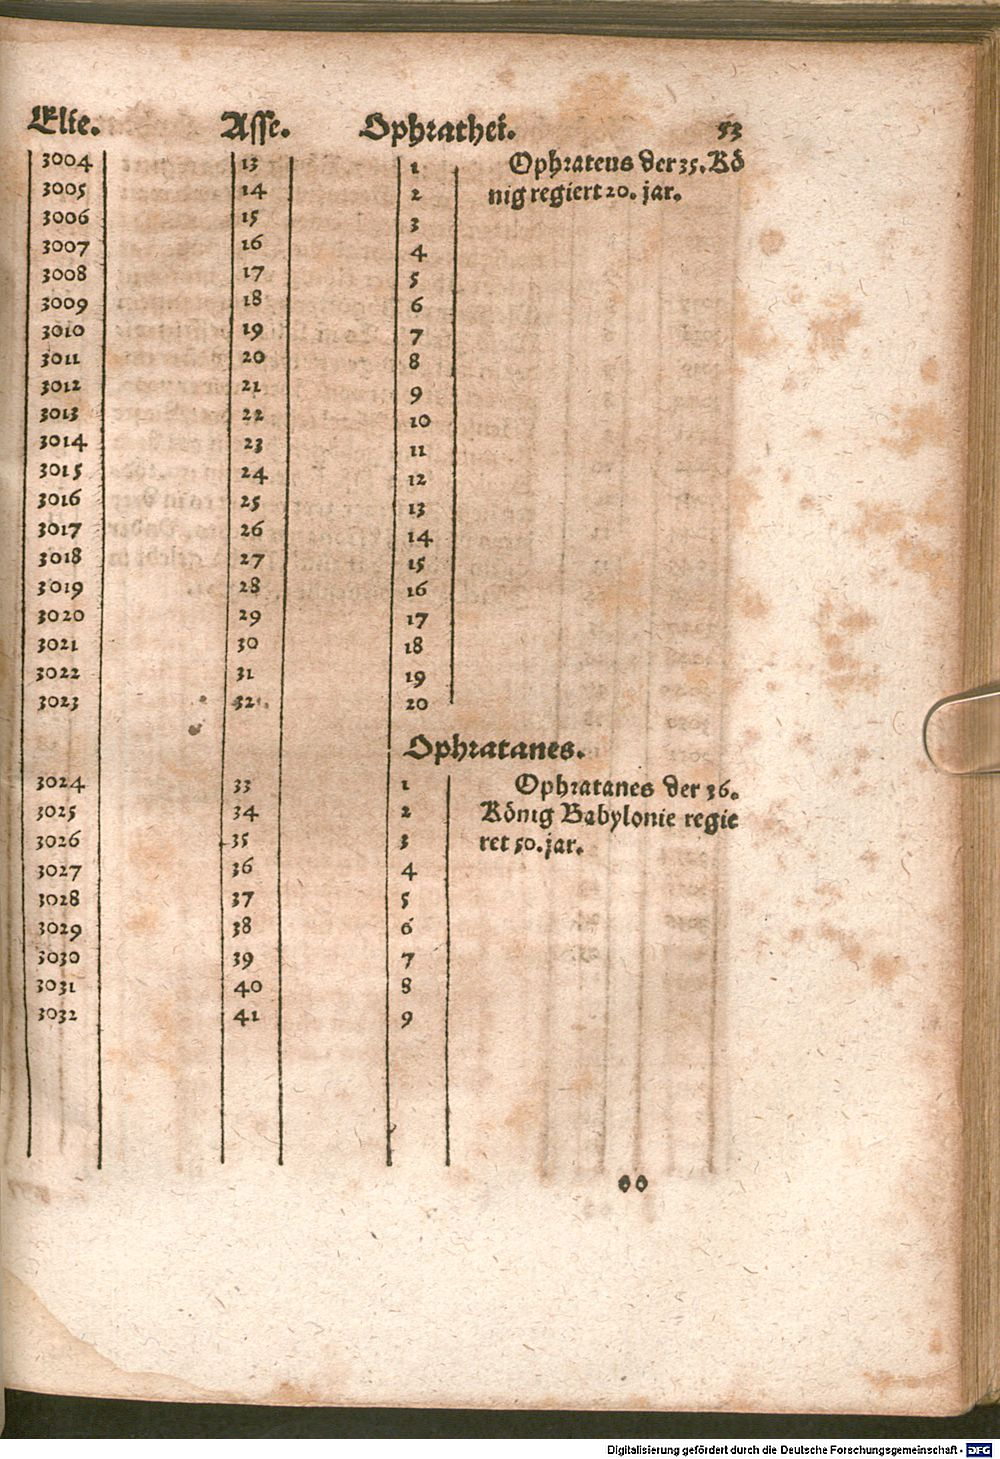 Elie. Asse. Ophrathei. 53
3004 13 1 Ophrateus der 35. Kö
3005 14 2 nig regiert 20. jar.
3006 15 3
3007 16 4
3008 17 5
3009 18 6
3010 19 7
3011 20 8
3012 21 9
3013 22 10
3014 23 11
3015 24 12
3016 25 13
3017 26 14
3018 27 15
3019 28 16
3020 29 17
3021 30 18
3022 31 19
3023 32 20
Ophratanes.
3024 33 1 Ophratanes der 36.
3025 34 2 König Babylonie regie
3026 35 3 ret 50. jar.
3027 36 4
3028 37 5
3029 38 6
3030 39 7
3031 40 8
3032 41 9
Digitalisierung gefördert durch die Deutsche Forschungsgemeinschaft - DFG